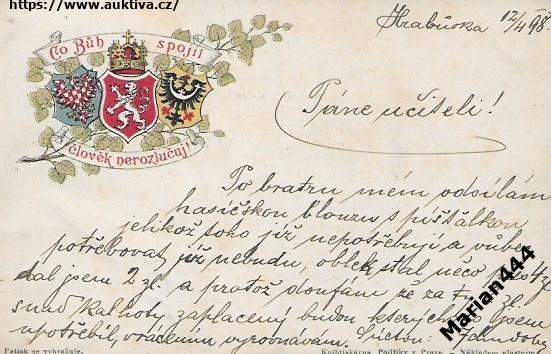 https://www.auktiva.cz/
Hrabůvka 12/4 98.
Co Bůh spojil
člověk nerozlučuj!
Pane učiteli!
Po bratru mém odsílám
hasičskou blouzu s píšťalkou
jelikož toho již nepotřebuji a vůbec
potřebovat již nebudu, oblek stál něco
dal jsem 2 zl. a protož doufám že za
snad kalhoty zaplaceny budou kterých jsem
upotřebil, vrácením vyrovnávám. Úctou
Marian444
Patisk se vyhražuje.
Knihtiskárna Politiky v Praze. Nákladem vlastním.